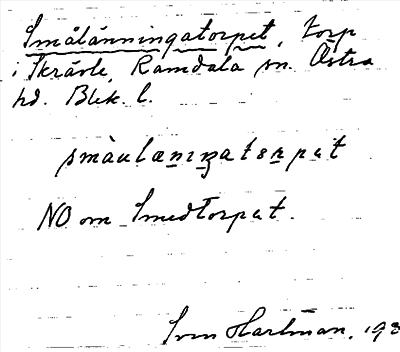 Smålänningatorpet, torp
i Skrävle, Ramdala sn. Östra
hd. Blek. l.
NO om Smedtorpat.
Sven Hartman, 193